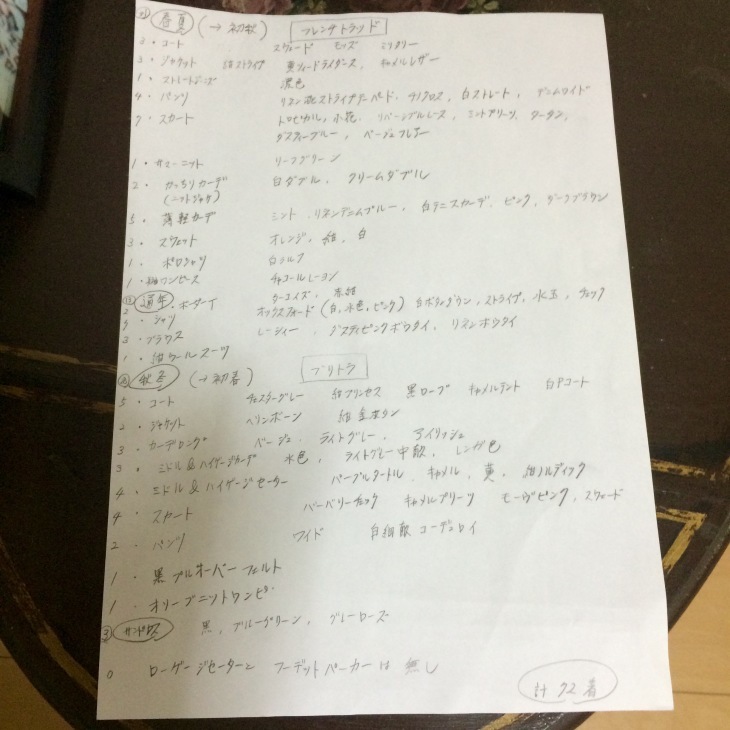 春夏 (→初秋) フレンチトラッド
3・コート スウェード モッズ ミリタリー
3・ジャケット 紺ストライプ ライダース, キャメルレザー
1・ 濃色
4・パンツ リネン混ストライプテーパード, チノクロス, 白ストレート, デニムワイド
7・スカート トロピカル, 小花, リバーシブルレース, ミントプリーツ, タータン,
ダスティーブルー, ベージュフレアー
1・サマーニット リーフグリーン
2・かっちりカーデ 白ダブル, クリームダブル
(ニットジャケ)
5・薄軽カーデ ミント, リネンデニムブルー, 白テニスカーデ, ピンク, ダークブラウン
3・スウェット オレンジ, 紺, 白
1・ポロシャツ 白ラルフ
1・ワンピース チャコールレーヨン
通年
2・ボーダー ターコイズ, 赤紺
・シャツ オックスフォード (白, 水色, ピンク) 白ボタンダウン, ストライプ, 水玉, チェック
3・ブラウス レーシィー, ダスティピンクボウタイ, リネンボウタイ
1・紺ウールスーツ
秋冬 (→初春) ブリトラ
5・コート チェスターグレー 紺プリンセス 黒ローブ キャメルテント 白Pコート
2・ジャケット ヘリンボーン 紺金ボタン
3・カーデロング ベージュ, ライトグレー, アイリッシュ
3・ミドル&ハイゲージカーデ 水色, ライトグレー中畝, レンガ色
4・ミドル&ハイゲージセーター パープルタートル, キャメル, 紺ノルディック
4・スカート バーバリーチェック キャメルプリーツ モーヴピンク, スウェード
2・パンツ ワイド 白細畝コーデュロイ
1・黒プルオーバーフェルト
1・オリーブニットワンピ
③ 黒, ブルーグリーン, グレーローズ
0 ローゲージセーターと フーデットパーカーは 無し
計 72着